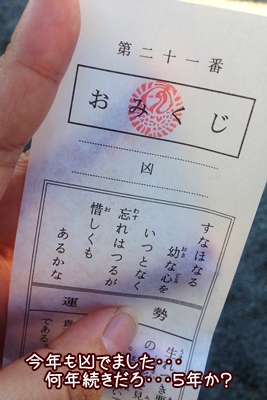 第二十一番
おみくじ
凶
すなほなる
幼な心を
おさ
ごころ
いつとなく
忘れはつるが
わす
惜しくも
お
あるかな
運
勢
生れ
の
である
今年も凶でました・・・
何年続きだろ・・・５年か？